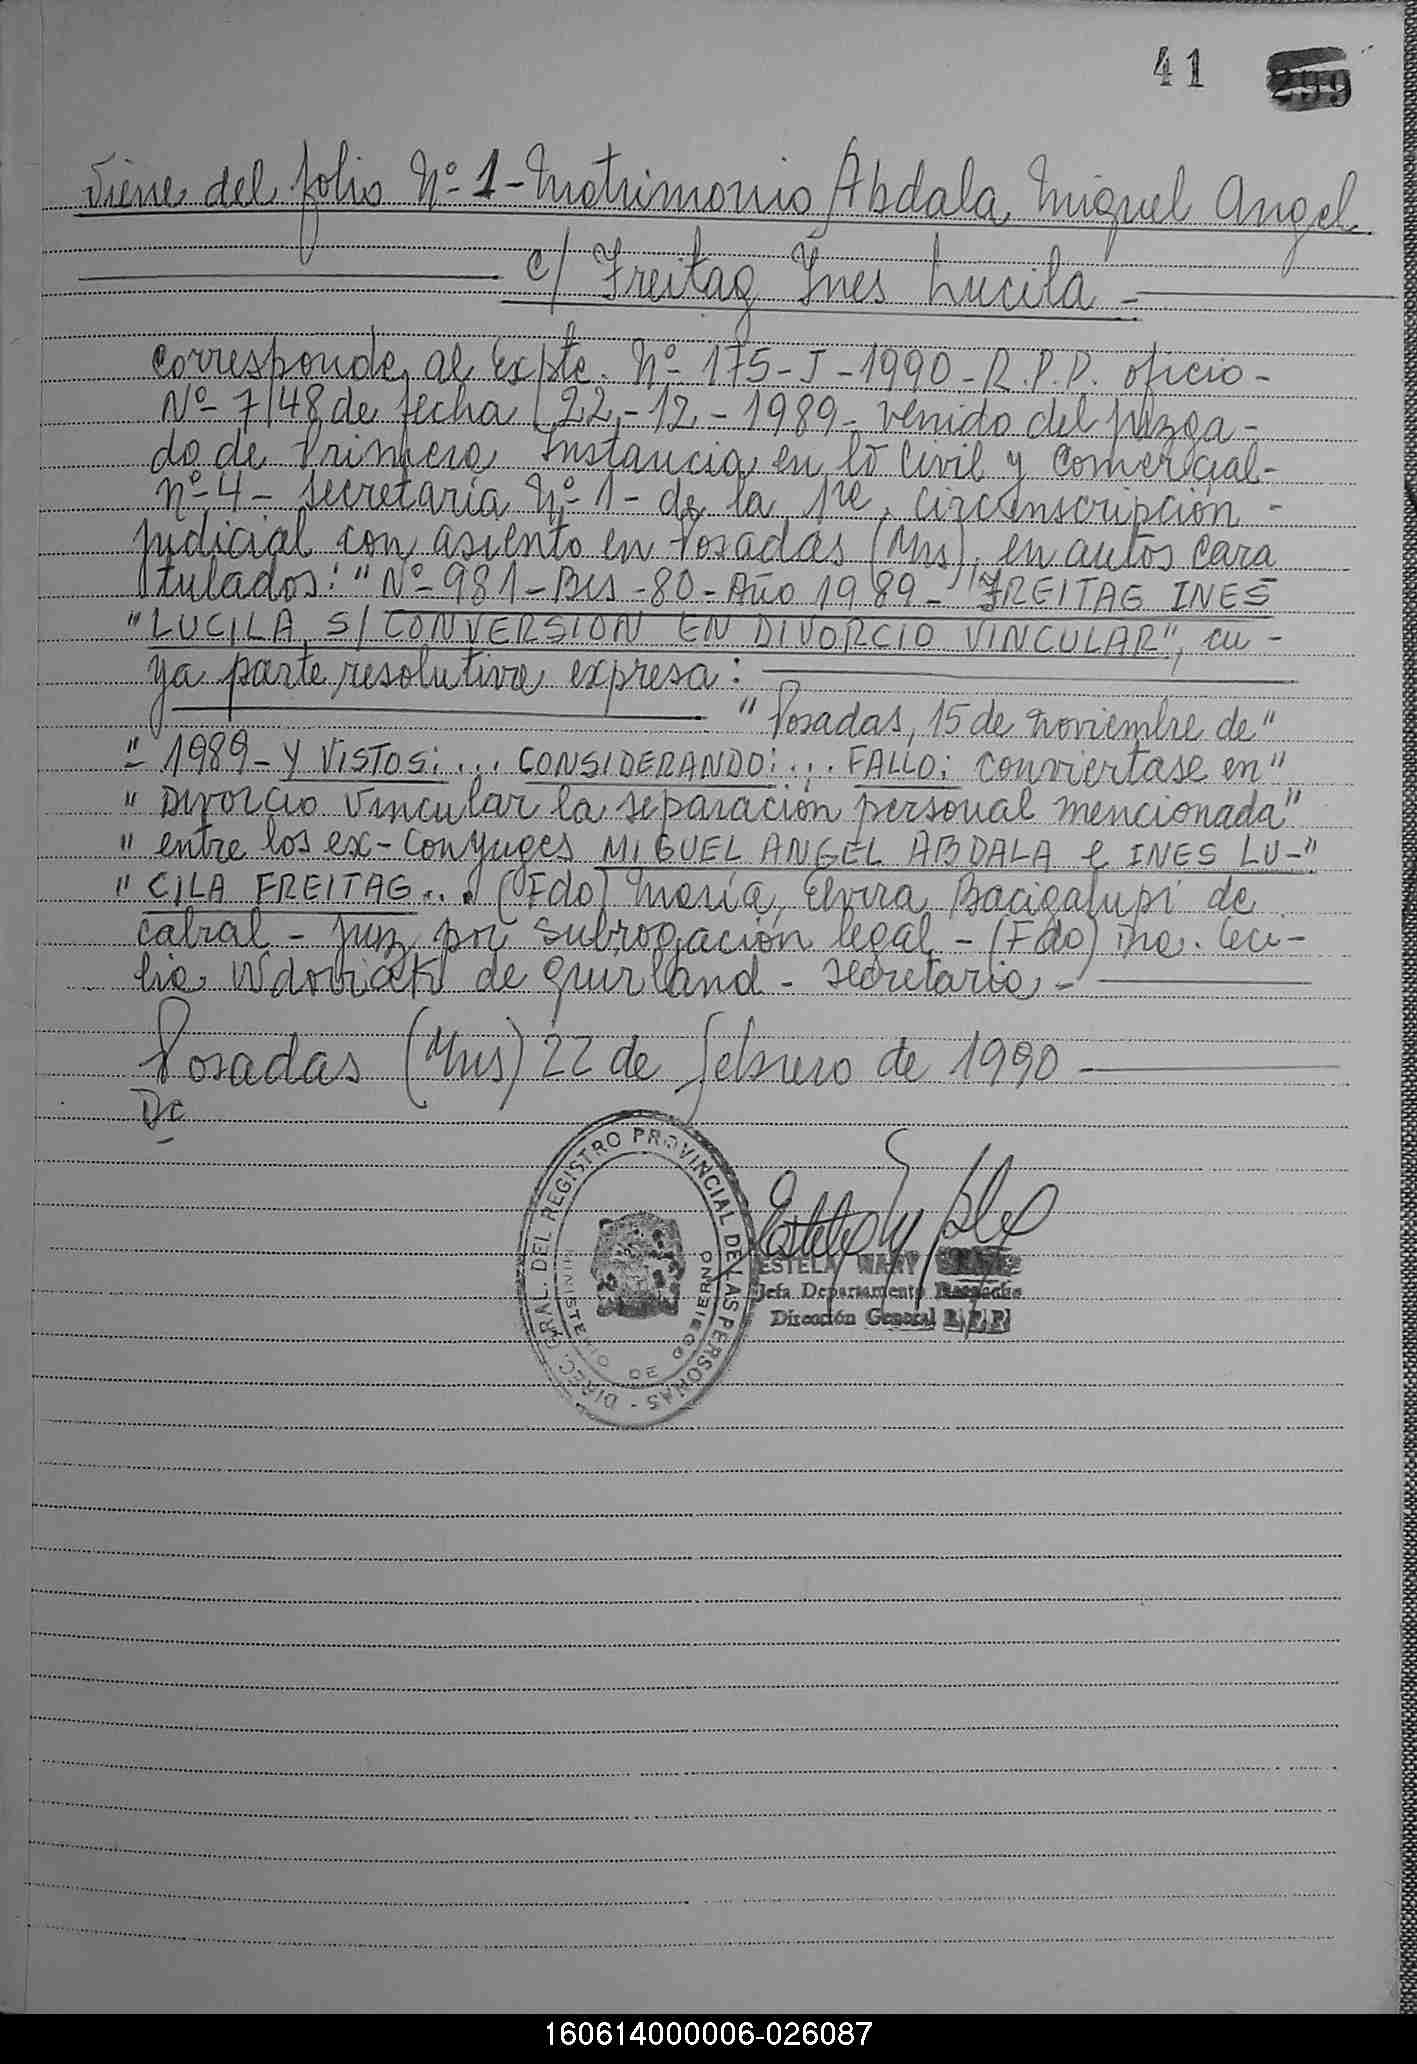 41 299
Viene del folio Nº 1 - Matrimonio Abdala, Miguel Angel
c/ Freitag Ines Lucila -
Corresponde al Expte. Nº 175-J-1990-R.P.P. oficio-
Nº 7148 de fecha 22-12-1989- venido del juzga-
do de Primera Instancia en lo Civil y Comercial-
nº 4 - secretaría Nº 1 - de la 1ra. circunscripción -
judicial con asiento en Posadas (Mns), en autos cara
tulados: "Nº 981-Bis-80-Año 1989- "FREITAG INES
"LUCILA S/ CONVERSION EN DIVORCIO VINCULAR", cu-
ya parte resolutiva expresa:
"Posadas, 15 de noviembre de"
"1989- Y VISTOS:... CONSIDERANDO:... FALLO: conviertase en"
"Divorcio Vincular la separación personal mencionada"
"entre los ex-conyuges MIGUEL ANGEL ABDALA e INES LU-"
"CILA FREITAG... (Fdo) María Elvira Bacigalupi de
Cabral - juez por subrogación legal - (Fdo) Ma. Ceci-
lia de Guirland - secretaria -
Posadas (Mns) 22 de febrero de 1990
Dc
DIREC. GRAL. DEL REGISTRO PROVINCIAL DE LAS PERSONAS -
MINISTERIO DE GOBIERNO
ESTELA MARY
Jefa Departamento Despacho
Dirección General R.P.P.
160614000006-026087